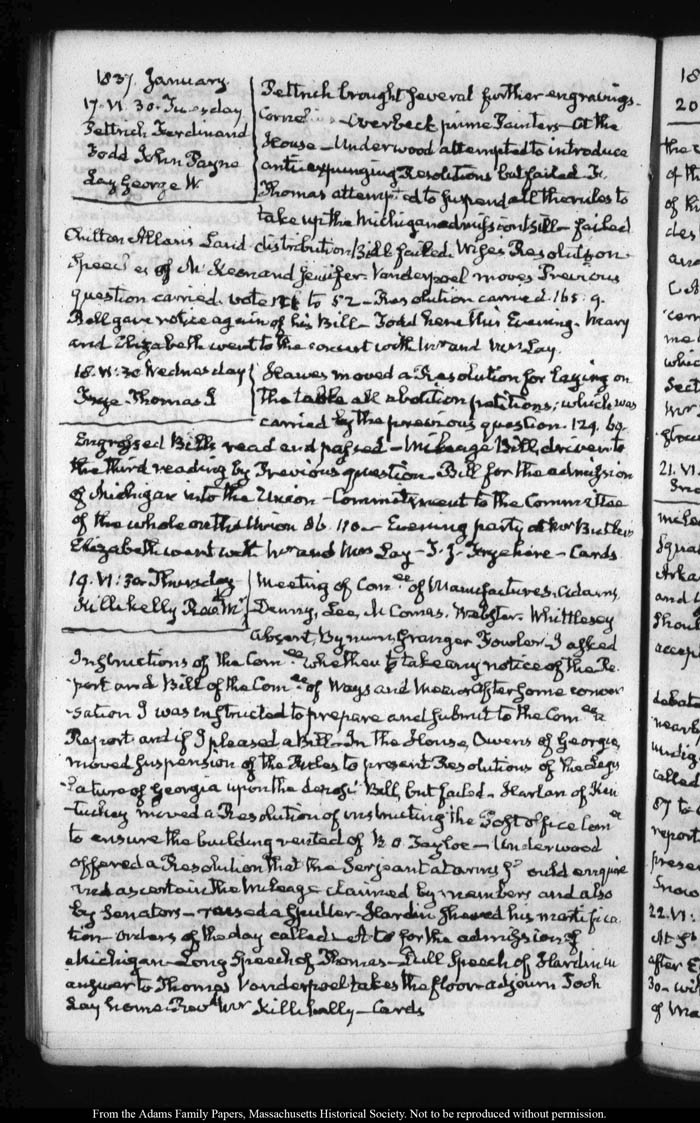 1837. January.
17. VI. 30. Tuesday
Pettrich Ferdinand
Todd John Payne
Lay George W.
Pettrich brought several further engravings.
Overbeck prime Painters — At the
House — Underwood attempted to introduce
anti expunging Resolutions but failed Fr.
Thomas attempted to suspend all the rules to
take up the Michigan admission Bill — failed
Chilton Allan's Land distribution Bill failed. Wise's Resolution
Speeches of McKeon and Jenifer. Vanderpoel moves Previous
question carried. vote to 52 — Resolution carried. 165. 9.
Bell gave notice again of his Bill — Todd here this Evening. Mary
and Elizabeth went to the concert with Mr and Mrs Lay.
18. VI: 30 Wednesday
Frye Thomas J
Hawes moved a Resolution for laying on
the table all abolition petitions; which was
carried by the previous question. 129. 69.
Engrossed Bills read and passed — Mileage Bill, driven to
the third reading by Previous question — Bill for the admission
of Michigan into the Union — Commitment to the Committee
of the whole on the Union 86. 110 — Evening party at Mr
Elizabeth went with Mr and Mrs Lay — T. J. Frye here — Cards
19. VI: 30. Thursday
Killikelly Revd Mr
Meeting of Comee of Manufactures. Adams,
Denny, Lee, McComas. Webster. Whittlesey
absent, Bynum, Granger Fowler — I asked
Instructions of the Comee whether to take any notice of the Re-
port and Bill of the Comee of Ways and Means. After some conver
sation I was instructed to prepare and submit to the Comee a
Report and if I pleased a Bill — In the House, Owens of Georgia,
moved suspension of the Rules to present Resolutions of the Legis
lature of Georgia upon the deposit Bill, but failed. Harlan of Ken
tuckey moved a Resolution of instructing the Post office Comee
to ensure the building rented of B. O. Tayloe — Underwood
offered a Resolution that the Serjeant at arms should enquire
and ascertain the Mileage claimed by members and also
by Senators — raised a splutter. Hardin shewed his mortifica
tion — orders of the day called — Act for the admission of
Michigan — Long Speech of Thomas — Dull Speech of Hardin in
answer to Thomas Vanderpoel takes the floor — adjourn Took
Lay home — Revd Mr Killikelly — Cards
18
20
of th
21. VI.
and
accep
debate
called
87 to
report
presen
22. VI:
after E
of Ma
From the Adams Family Papers, Massachusetts Historical Society. Not to be reproduced without permission.